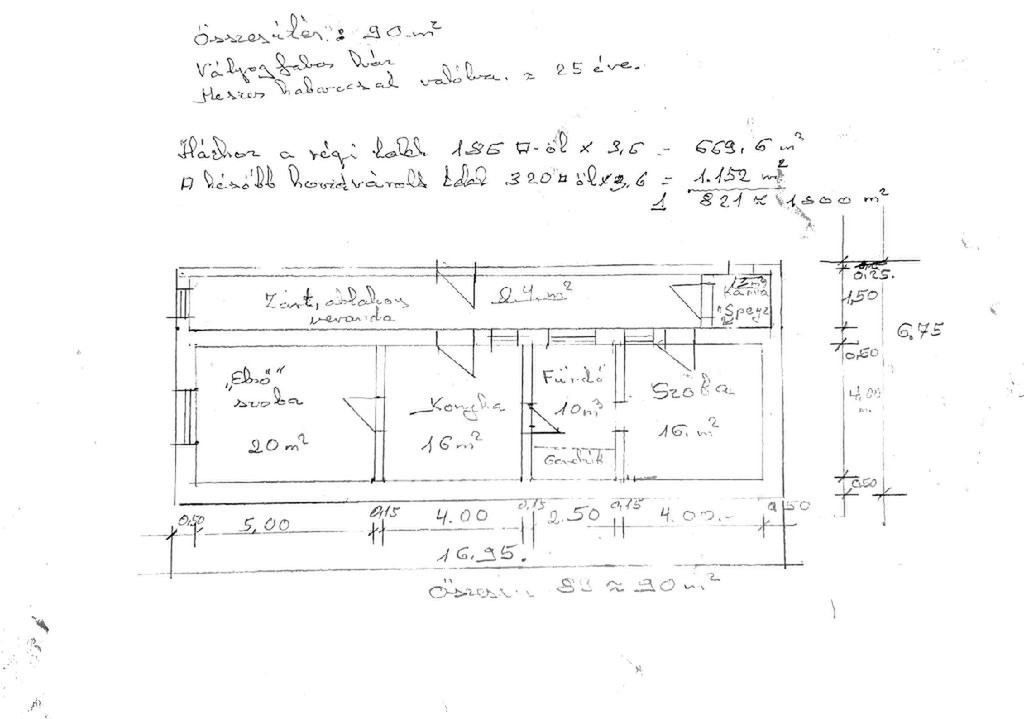 Összesítés: 90 m²
Vályogfalas ház
Meszes habarccsal valólva. ≈ 25 éve.
Házhoz a régi telek 186 □-öl x 3,6 = 669,6 m²
A később hozzávásárolt telek 320 □ öl x 3,6 = 1.152 m²
1 821 ≈ 1800 m²
Zárt, ablakos
veranda
2.4. m²
Kamra
"Spejz"
0.25.
1,50
6.75
0,50
4,00
m
0,50
"Első"
szoba
20 m²
Konyha
16 m²
Fürdő
10 m³
Szoba
16. m²
0,50
5,00
0,15
4.00
0,15
2.50
0,15
4.00.-
0,50
16.95.
Összesen: 89 ≈ 90 m²